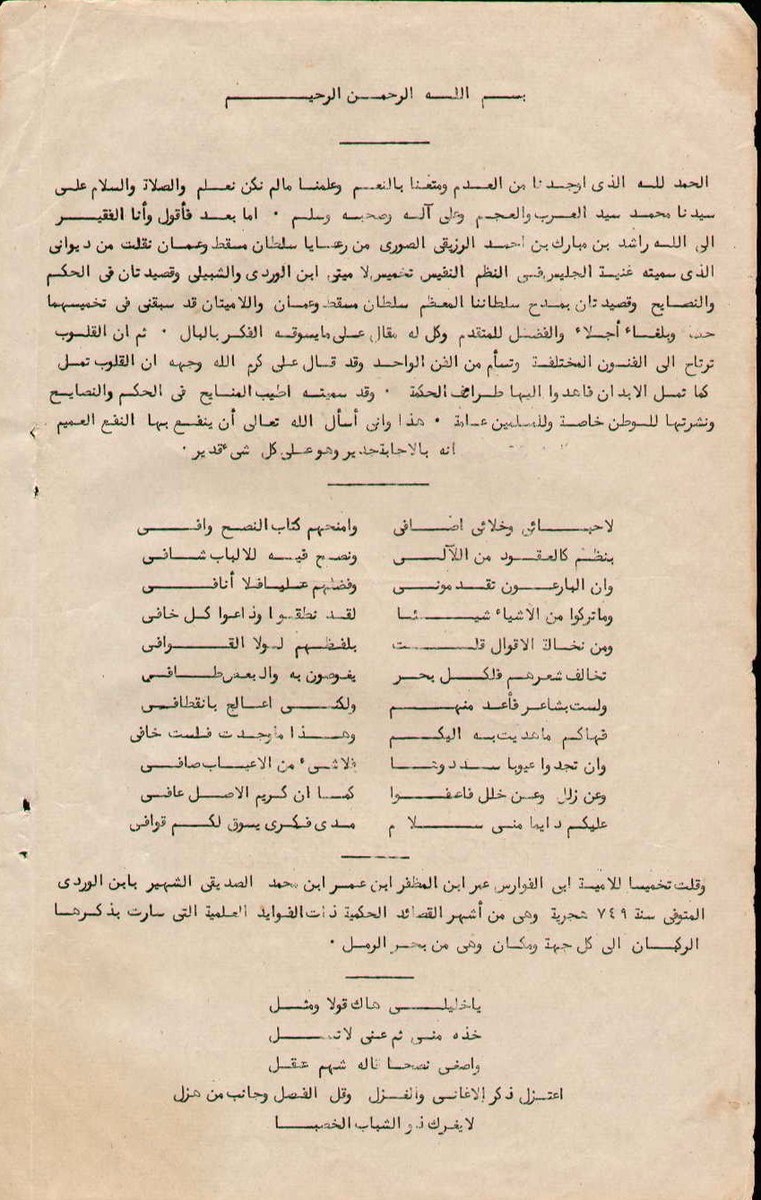 بسم الله الرحمن الرحيم
الحمد لله الذى اوجدنا من العدم ومتعنا بالنعم وعلمنا مالم نكن نعلم والصلاة والسلام على
سيدنا محمد سيد العرب والعجم وعلى آله وصحبه وسلم . اما بعد فأقول وأنا الفقير
الى الله راشد بن مبارك بن احمد الرزيقى الصورى من رعايا سلطان مسقط وعمان نقلت من ديوانى
الذى سميته غنية الجليس فى النظم النفيس تخميس لاميتى ابن الوردى والشبيلى وقصيدتان فى الحكم
والنصايح وقصيدتان بمدح سلطاننا المعظم سلطان مسقط وعمان واللاميتان قد سبقنى فى تخميسهما
وبلغاء أجلاء والفضل للمتقدم وكل له مقال على مايسوقه الفكر بالبال . ثم ان القلوب
ترتاح الى الفنون المختلفة وتسأم من الفن الواحد وقد قال على كرم الله وجهه ان القلوب تمل
كما تمل الابدان فاهدوا اليها طرائف الحكمة . وقد سميته اطيب المنايح فى الحكم والنصايح
ونشرتها للوطن خاصة وللمسلمين عامة . هذا وانى أسأل الله تعالى أن ينفع بها النفع العميم
انه بالاجابة جدير وهو على كل شىء قدير .
لاحبائى وخلائى اضافى وامنحهم كتاب النصح وافى
بنظم كالعقود من اللآلى ونصح فيه للالباب شافى
وان البارعون تقدمونى وفضلهم عليا فلا أنافى
وماتركوا من الاشياء شيئا لقد نطقوا وذاعوا كل خافى
ومن نخالة الاقوال قلت بلفظهم لولا القوافى
تخالف شعرهم فلكل بحر يغوصون به والبعض طافى
ولست بشاعر فأعد منهم ولكنى اعالج بانقطافى
فهاكم ماهديت به اليكم وهذا ماوجدت فلست خافى
وان تجدوا عيوبا سددوها فلاشىء من الاعياب صافى
وعن زلل وعن خلل فاعفوا كما ان كريم الاصل عافى
عليكم دايما منى سلام مدى فكرى يسوق لكم قوافى
وقلت تخميسا للامية ابى الفوارس عمر ابن المظفر ابن عمر ابن محمد الصديقى الشهير بابن الوردى
المتوفى سنة ٧٤٩ هجرية وهى من أشهر القصائد الحكمية ذات الفوايد العلمية التى سارت بذكرها
الركبان الى كل جهة ومكان وهى من بحر الرمل .
ياخليلى هاك قولا ومثل
خذه منى ثم عنى لاتسل
واصغى نصحا قاله شهم عقل
اعتزل ذكر الاغانى والغزل وقل الفصل وجانب من هزل
لايغرك ذو الشباب الخصبا